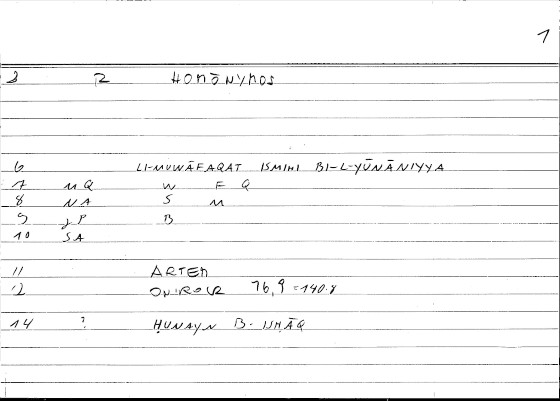 1
3 HOMŌNYMOS
6 LI-MUWĀFAQAT ISMIHI BI-L-YŪNĀNIYYA
7 MQ W F Q
8 NA S M
9 JP B
10 SA
11 ARTEM
12 ONIROCR 76,9 =140.8
14 ? ḤUNAYN B. ISḤĀQ